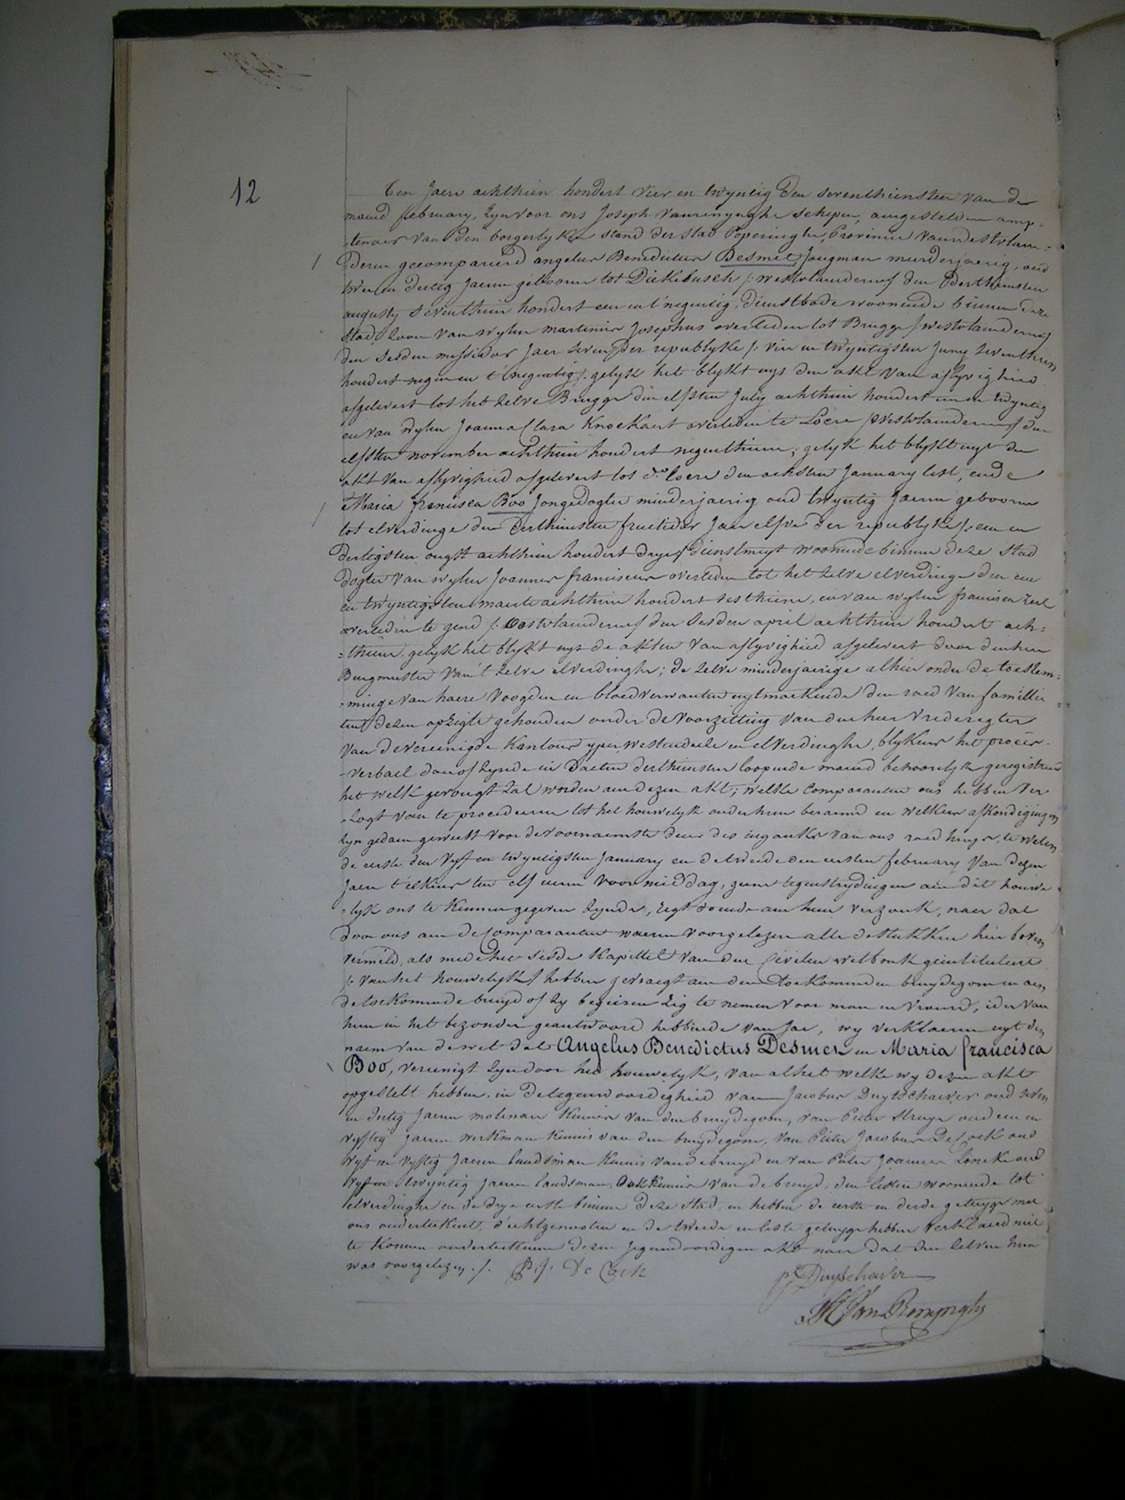 12
Ten Jaere achthien hondert vier en twyntig den seventhiensten van de
maend february, zyn voor ons Joseph vanrenynghe schepen, aengestelden amp-
-tenaer van den borgerlyken stand der stad Poperinghe, Provincie vanwestvlaen-
deren gecompareerd angelus Benedictus Desmet Jongman meerderjaerig, oud
twee en dertig Jaeren geboren tot Dickebusch /: westvlaenderen/ den derthiensten
augusty seventhien hondert een en t'negentig, dienstbode woonende binnen deze
stad, zoon van wylen martinus Josephus overleden tot Brugge /westvlaenderen/
den sesden messidor Jaer seven der republyke /: vier en twyntigsten Juny seventhien
hondert negen en t'negentig/: gelyk het blykt uyt den akt van aflyvigheid
afgelevert tot het zelve Brugge den elfsten July achthien hondert een en twyntig
en van wylen Joanna Clara Knockaert overleden te Loere /westvlaenderen/ den
elfsten november achthien hondert negenthien, gelyk het blykt uyt den
akt van aflyvigheid afgelevert tot do. Loere den achsten January lest, ende
Maria francisca Boo Jongedogter minderjaerig oud twyntig Jaeren geboren
tot elverdinge den derthiensten fructidor Jaer elf der republyke /: een en
dertigsten ougst achthien hondert drye/ dienstmeyt woonende binnen deze stad
dogter van wylen Joannes franciscus overleden tot het zelve elverdinge den een
en twyntigsten maerte achthien hondert sesthien, en van wylen francisca
overleden te gend /: Oostvlaenderen/ den sesden april achthien hondert ach-
-thien, gelyk het blykt uyt de akten van aflyvigheid afgelevert door den heer
Burgmeester van 't zelve elverdinghe; de zelve minderjaerige alhier onder de toestem-
-minge van haere voogden en bloedverwanten uytmaekende den raed van familie
ten dezen opzigte gehouden onder de voorzetting van den heer vrederegter
van de vereenigde kantons yper westendeele en elverdinghe, blykens het proces-
-verbael daer of zynde in daeten derthiensten loopende maend behoorlyk geregistreert
het welk gevoegt zal worden aen dezen akt; welke comparanten ons hebben ver-
-zogt van te procederen tot het houwelyk onder hun beraemd en welkers afkondigingen
zyn gedaen geweest voor de voornaemste deur des ingank van ons raedhuys, te weten
de eerste den vyf en twyntigsten January en de tweede den eersten february van dezen
Jaere t'elkens ten elf ueren voormiddag, geene tegenstrydingen aen dit houwe-
-lyk ons te kennen gegeven zynde, regt doende aen hun verzoek, naer dat
door ons aen de comparanten waeren voorgelezen alle de stukken hier boven
vermeld, als mede het sesde Kapittel van den Civielen wetboek geintituleert
/: van het houwelyk/ hebben gevraegt aen den toekomenden bruydegom en aen
de toekomende bruyd of zy begeiren zig te nemen voor man en vrouw, ider van
hun in het bezonder geantwoord hebbende van Jae, wy verklaeren uyt den
naem van de wet dat Angelus Benedictus Desmet en Maria francisca
Boo, vereenigt zyn door het houwelyk, van al het welke wy dezen akt
opgestelt hebben, in de tegenwoordigheid van Jacobus Duytschaever oud seven
en dertig Jaeren molenaer kennis van den bruydegom, van Pieter Struye oud een en
vyftig Jaeren werkman kennis van den bruydegom, van Pieter Jacobus De Cock oud
vyf en vyftig Jaeren landsman kennis van de bruyd en van Pieter Joannes oud
vyf en twyntig Jaeren landsman, Ook kennis van de bruyd, den lesten woonende tot
elverdinghe en de drye eerste binnen deze stad, en hebben de eerste en derde getuyge met
ons onderteekent, d'echtgenooten en de tweede en leste getuyge hebben verklaerd niet
te konnen onderteekenen dezen jegenwoordigen akt naer dat den zelven hun
was voorgelezen ./.
P. J. De Cock
Duytschaever